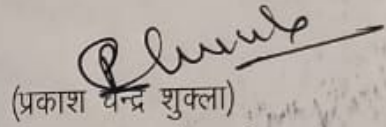 (प्रकाश चन्द्र शुक्ला)